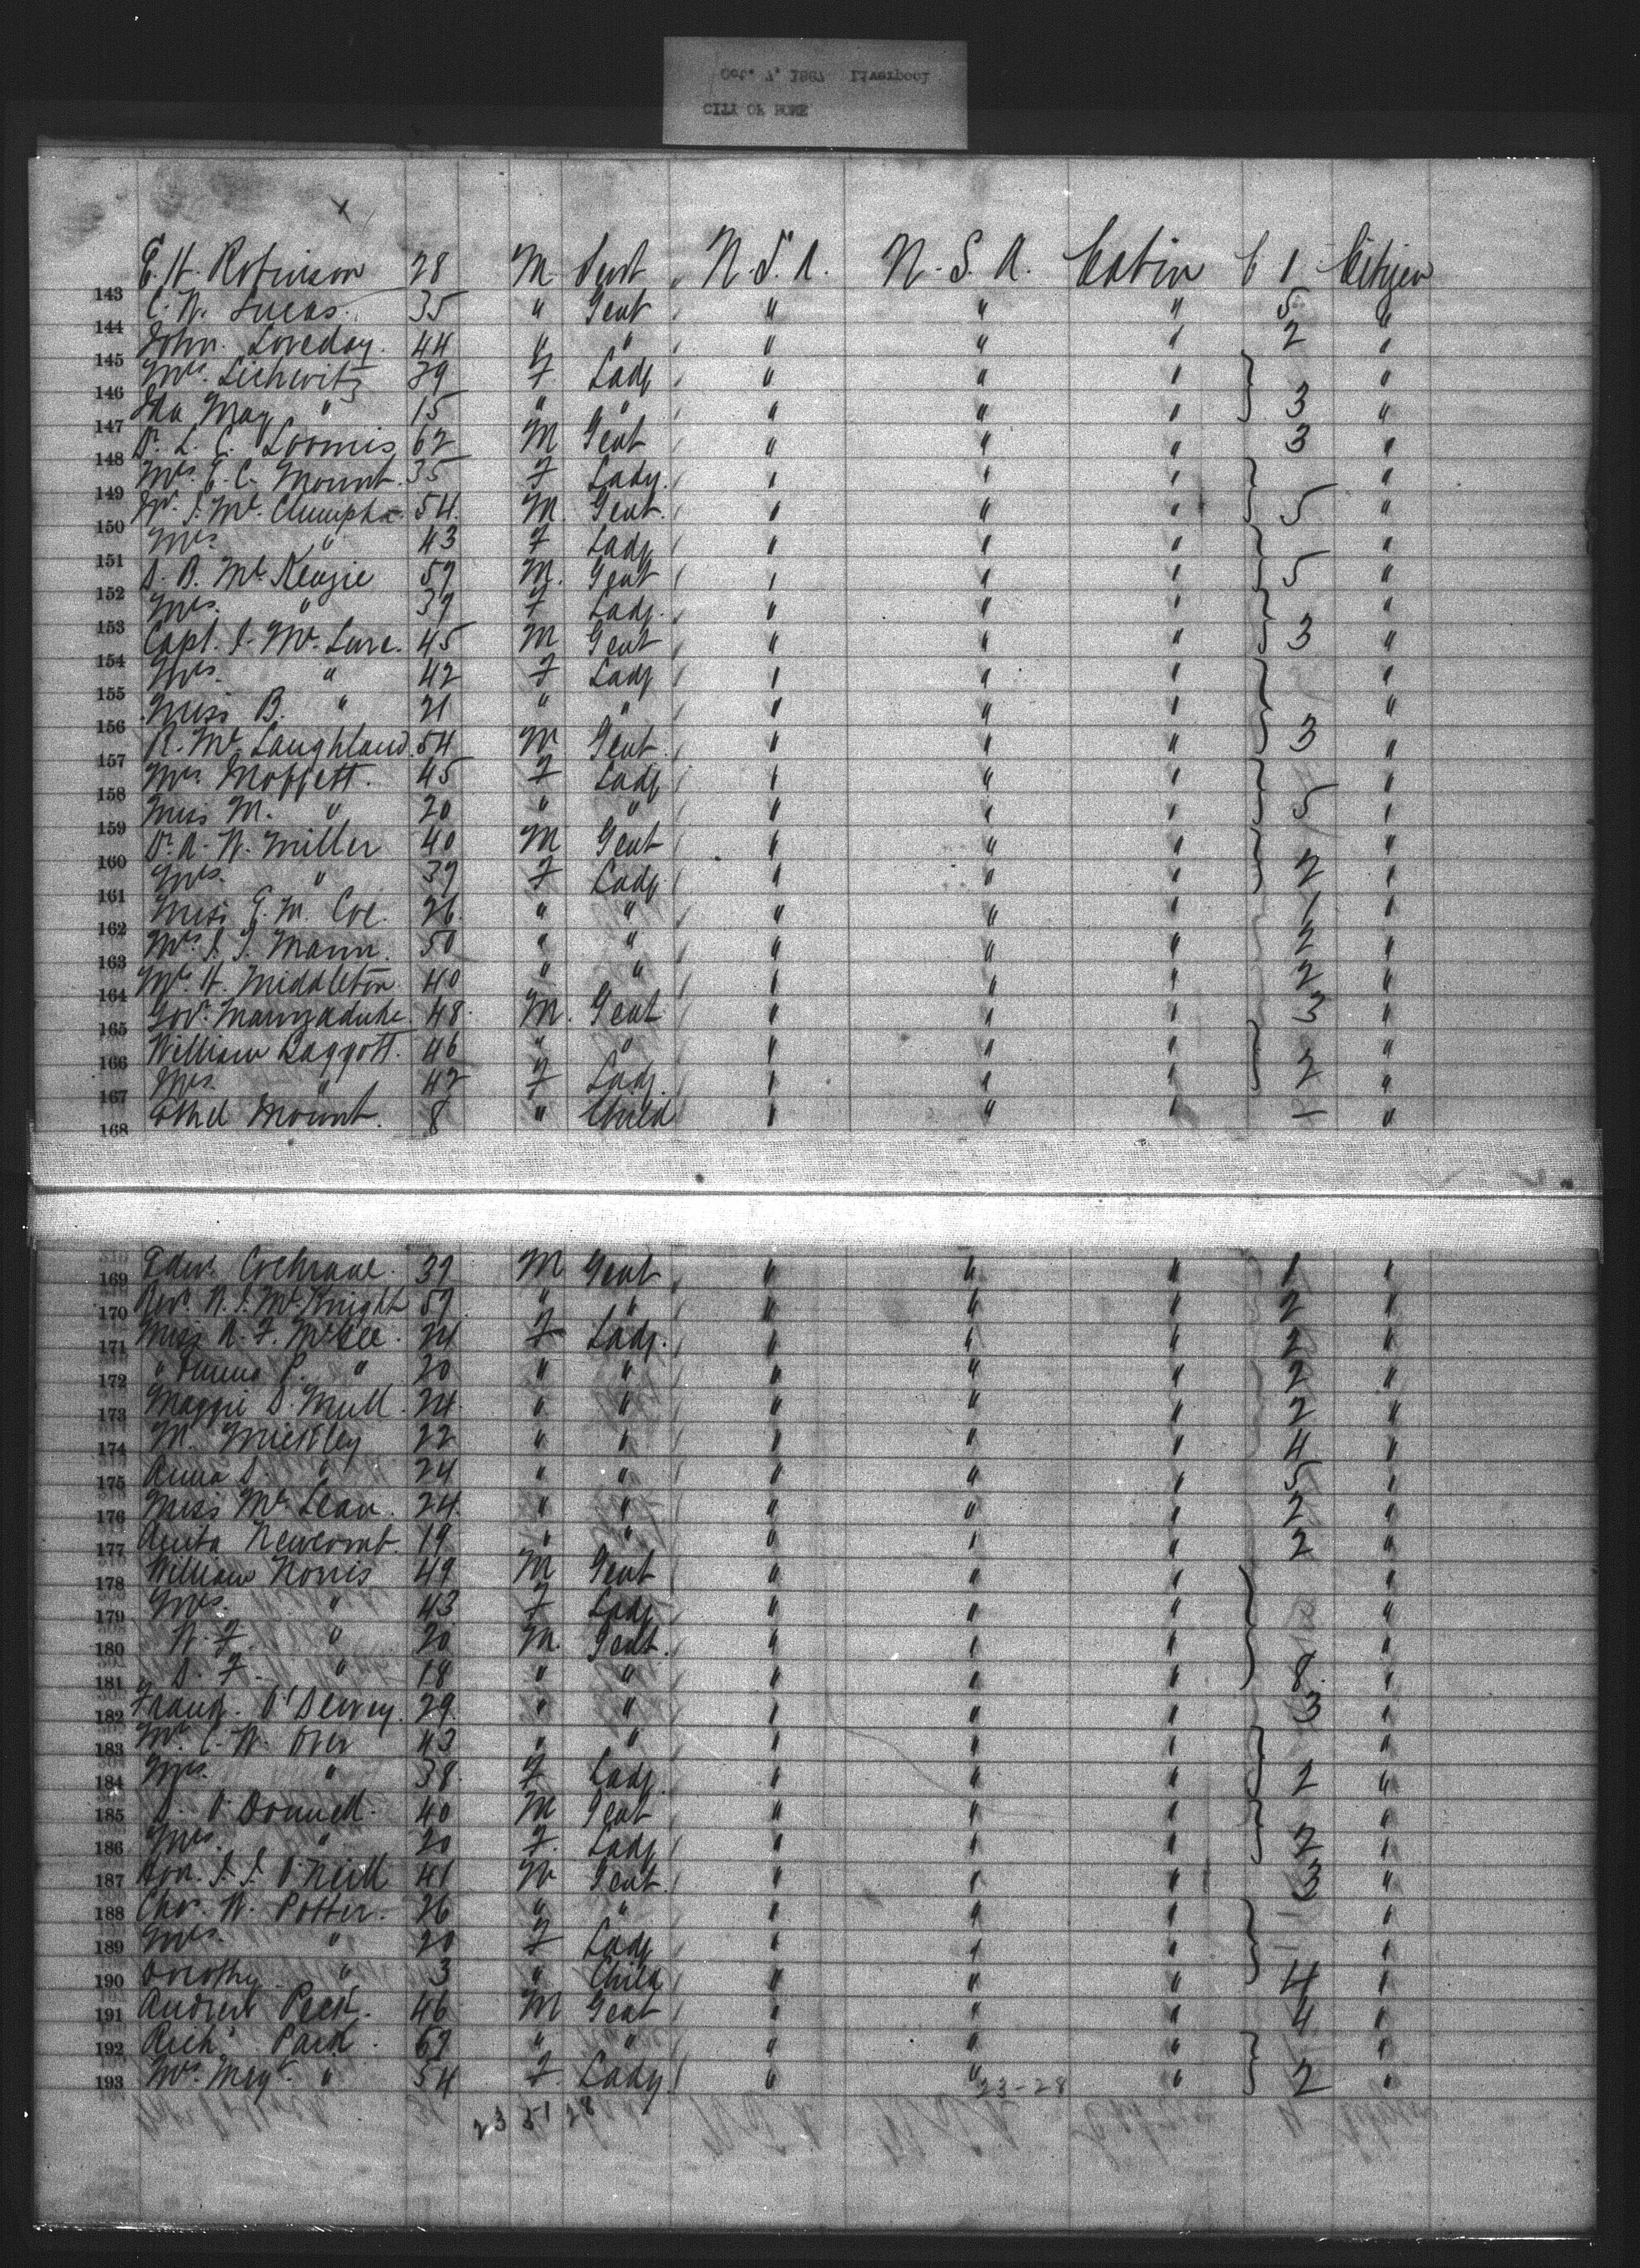 Oct. 7, 1887 Liverpool
CITY OF ROME
E. H. Robinson 28 M Gent " U.S.A. U.S.A. Cabin C 1 Citizen
143 C. W. Lucas. 35 " Gent " " " 5 "
144 John. Loveday. 44 " " " " " 2 "
145 Mrs. 39 F Lady " " " "
146 Ida May " 15 " " " " " 3 "
147 Dr. L. C. Loomis 62 M Gent " " " 3 "
148 Mrs. E. C. Mount. 35 F Lady. " " " "
149 54. M. Gent. " " " 5 "
150 Mrs. " 43 F Lady " " " "
151 Mc. Kenzie 59 M. Gent " " " 5 "
152 Mrs. " 39 F Lady. " " " "
153 Capt. J. Mc. Lure. 45 M Gent " " " 3 "
154 Mrs. " 42 F Lady " " " "
155 Miss B. " 21 " " " " " "
156 R. Mc. Laughland. 54 M Gent. " " " 3 "
157 Mrs. Moffett. 45 F Lady " " " "
158 Miss M. " 20 " " " " " 5 "
159 Dr. A. W. Miller 40 M Gent " " " "
160 Mrs. " 39 F Lady " " " 2 "
161 Miss E. M. Coe. 26 " " " " " 1 "
162 Mrs. J. J. Mann. 50 " " " " " 2 "
163 H. Middleton 40 " " " " " 2 "
164 Gov. Marmaduke. 48. M. Gent " " " 3 "
165 William Baggott. 46 " " " " " "
166 Mrs. " 42 F Lady. " " " 2 "
167 Ethel Mount. 8 " Child " " " - "
168
Edw. Cochrane. 39 M Gent " " " 1 "
169 Rev. Mc. Knight 59 " " " " " 2 "
170 Miss A. F. McKee. 24 F Lady. " " " 2 "
171 " Emma P. " 20 " " " " " 2 "
172 Maggie D. Mull. 24. " " " " " 2 "
173 M. Mickley 22 " " " " " 4 "
174 Anna S. " 24 " " " " " 5 "
175 Miss Mc. Lean. 24. " " " " " 2 "
176 Anita Newcomb. 19 " " " " " 2 "
177 William Norris 49 M Gent " " " "
178 Mrs. " 43 F Lady " " " "
179 W. F. " 20 M. Gent. " " " "
180 S. F. " 18 " " " " " 8. "
181 Frank. 29. " " " " " 3 "
182 Mr. C. W. Over 43 " " " " " "
183 Mrs. " 38. F Lady. " " " 2 "
184 O'Donnell. 40 M Gent " " " "
185 Mrs. " 20 F. Lady " " " 2 "
186 Hon. J. J. O'Neill 41 M Gent. " " " 3 "
187 Chas. W. Potter. 26 " " " " " "
188 Mrs. " 20 F Lady " " " "
189 Dorothy " 3 " Child " " " 4 "
190 Andrew Peck. 46 M Gent " " " 4 "
191 Rich. Park. 69 " " " " " "
192 Mrs. Mary. " 54 F. Lady. " " " 2 "
193
23-28
23 51 28